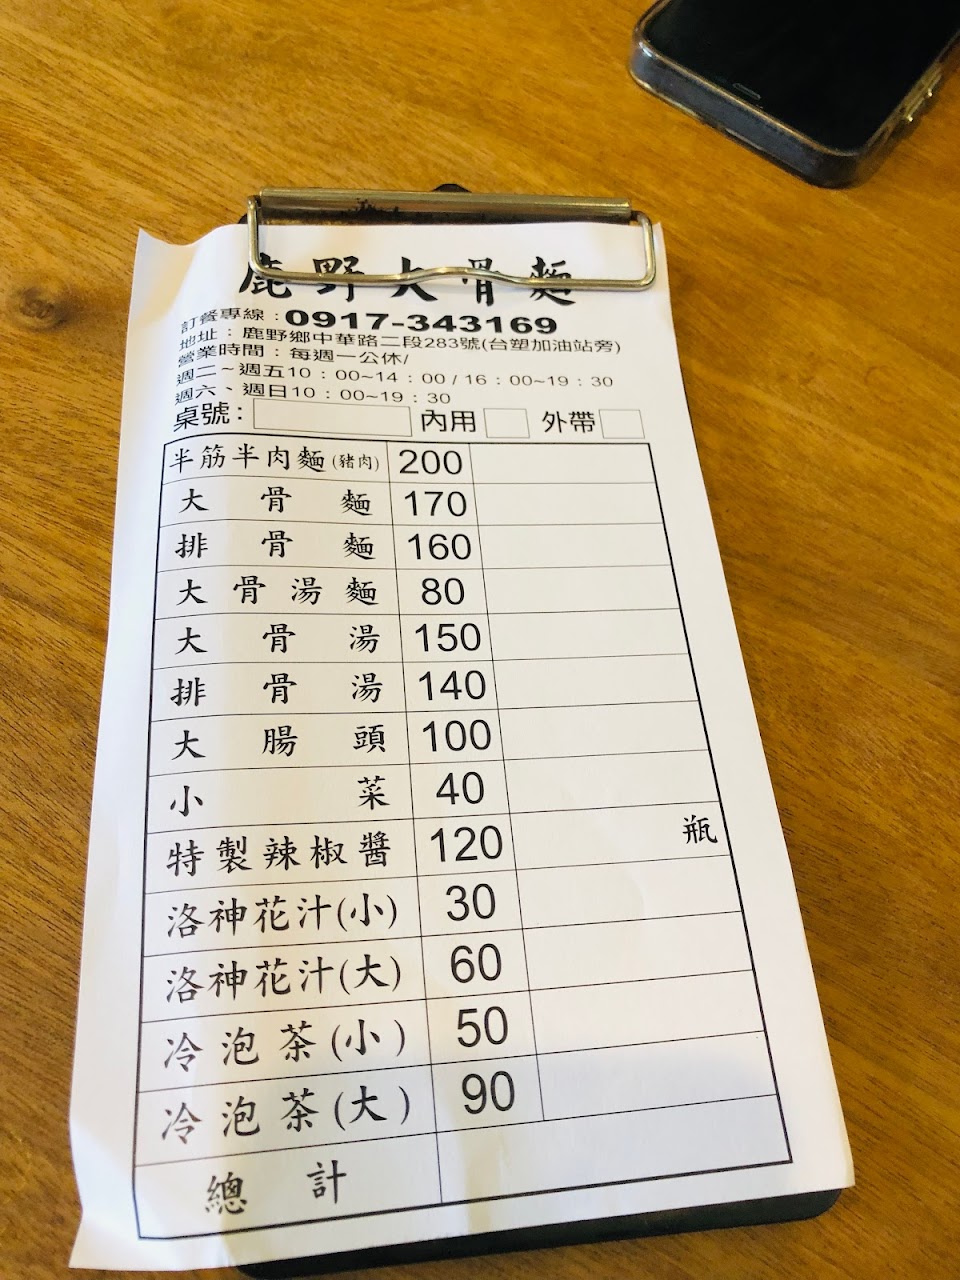 鹿野大骨麵
訂餐專線：0917-343169
地址：鹿野鄉中華路二段283號(台塑加油站旁)
營業時間：每週一公休/
週二~週五10：00~14：00/16：00~19：30
週六、週日10：00~19：30
桌號： 內用 外帶
半筋半肉麵(豬肉) 200
大骨麵 170
排骨麵 160
大骨湯麵 80
大骨湯 150
排骨湯 140
大腸頭 100
小菜 40
特製辣椒醬 120 瓶
洛神花汁(小) 30
洛神花汁(大) 60
冷泡茶(小) 50
冷泡茶(大) 90
總計